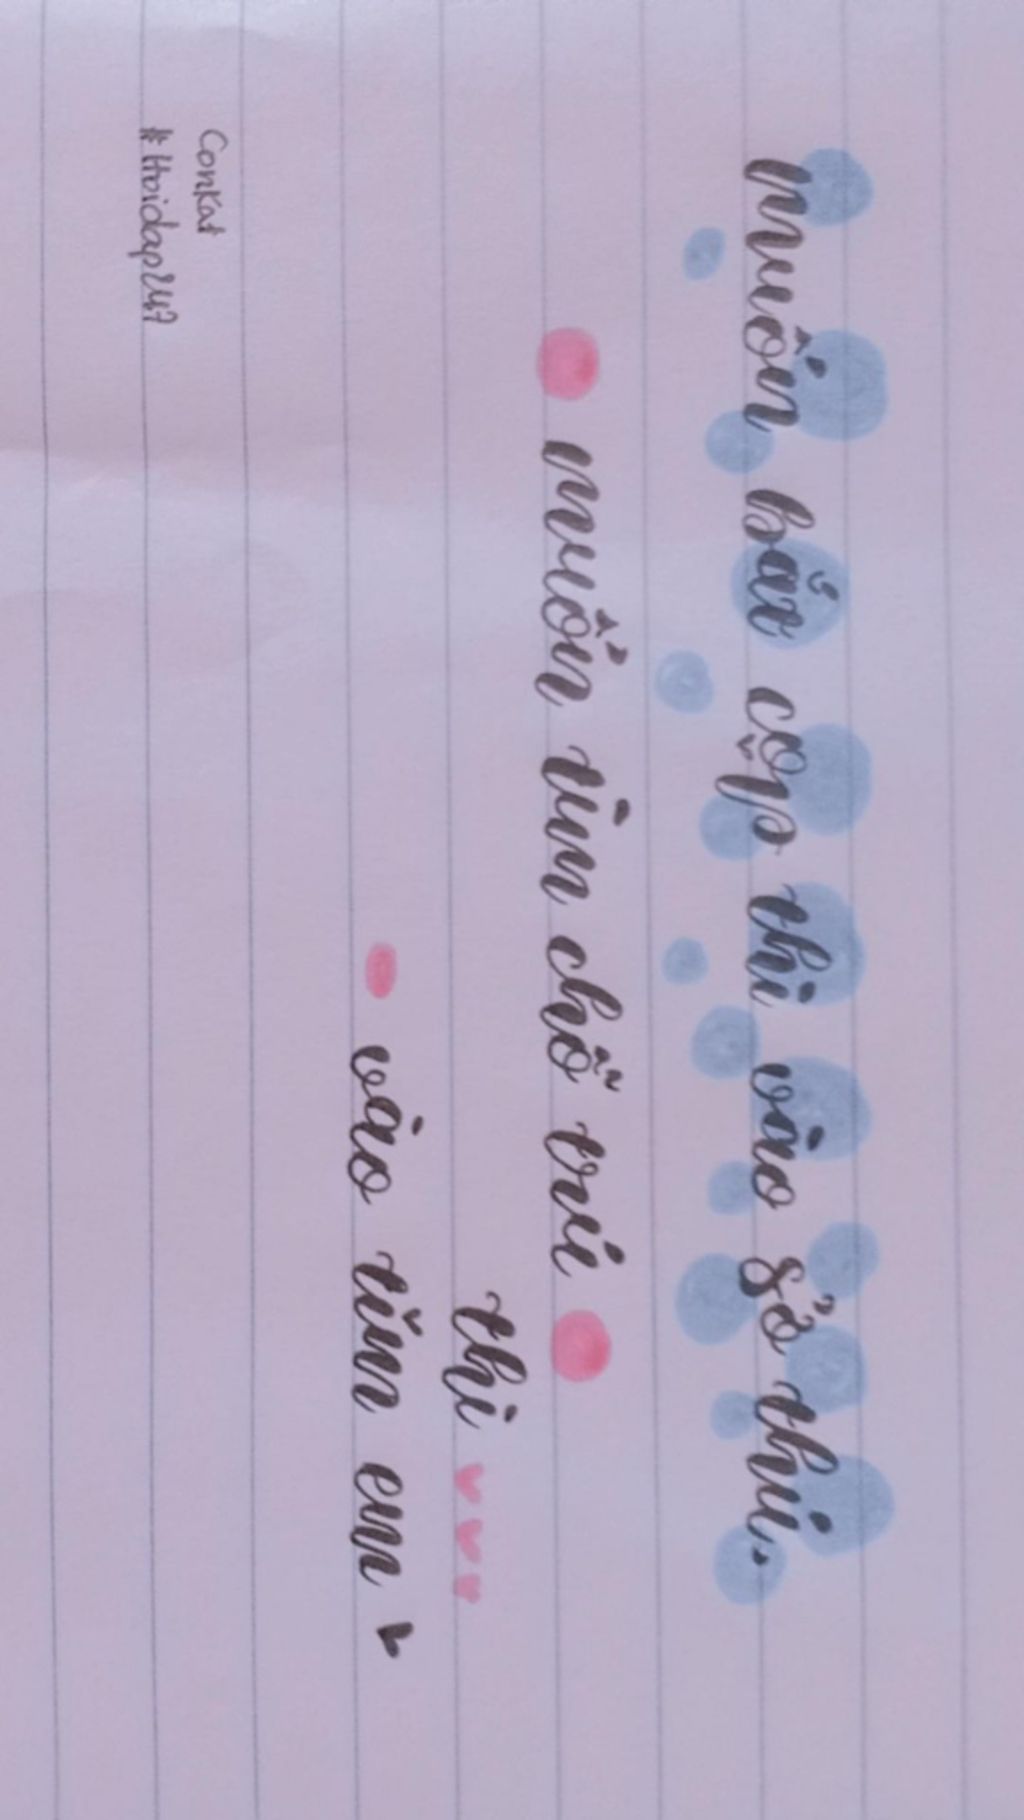 muốn bắt cọp thì vào sở thú.
muốn tìm chỗ trú
thì
vào tim em
Conkat
#Hoidap247